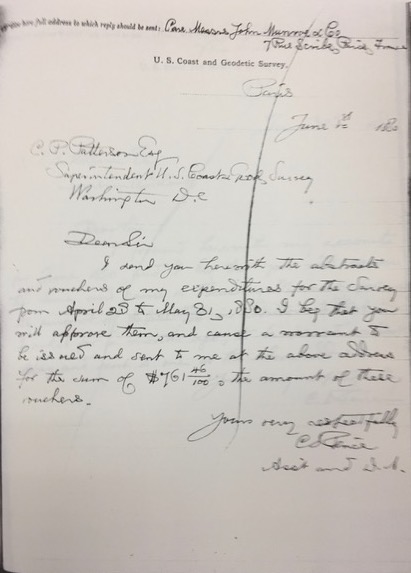 give here full address to which reply should be sent: Care Messrs John Munroe & Co
7 Rue Scribe, Paris, France
U. S. Coast and Geodetic Survey.
Paris
June 188
C. P. Patterson Esq
Superintendent U. S. Coast & Geod. Survey
Washington D.C
Dear Sir
I send you herewith the abstracts
and vouchers of my expenditures for the Survey
from April 28 to May 31, 1880. I beg that you
will approve them, and cause a warrant to
be issued and sent to me at the above address
for the sum of $761 46/100, the amount of these
vouchers.
Yours very respectfully
C S Peirce
Asst